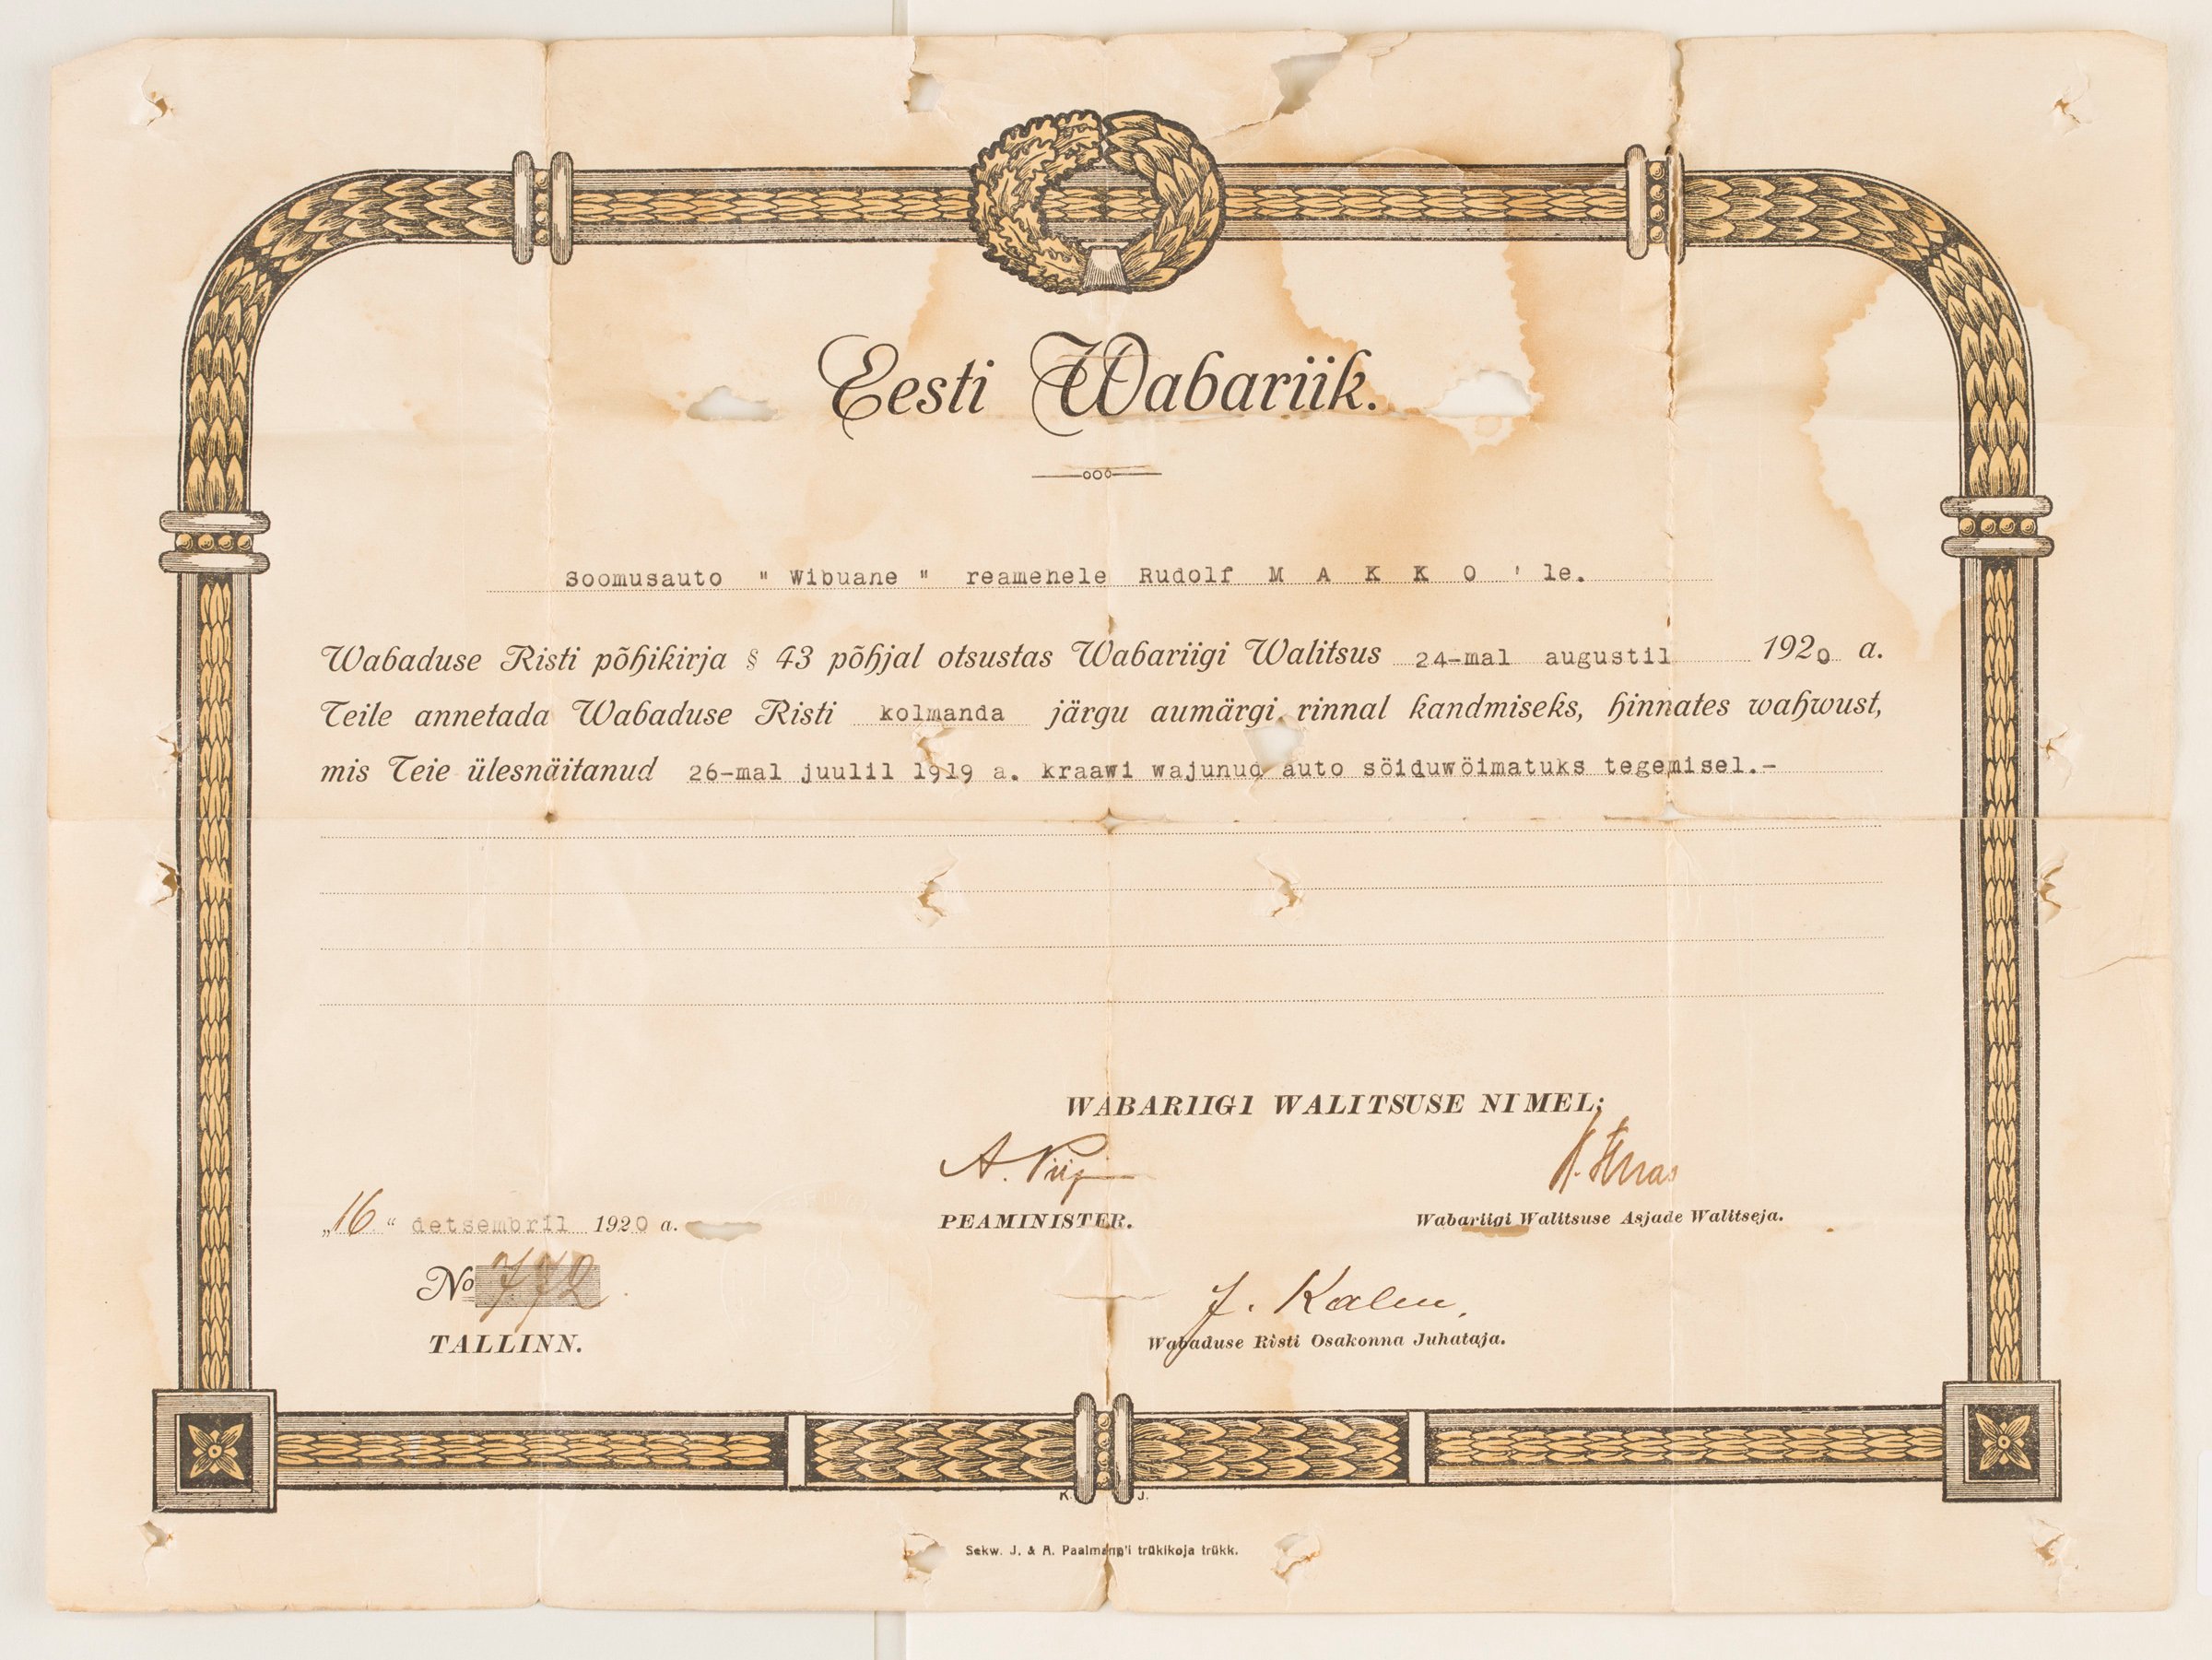 Eesti Wabariik.
Soomusauto " Wibuane " reamehele Rudolf M A K K O ' le.
Wabaduse Risti põhikirja § 43 põhjal otsustas Wabariigi Walitsus 24-mal augustil 1920 a.
Teile annetada Wabaduse Risti kolmanda järgu aumärgi rinnal kandmiseks, hinnates wahwust,
mis Teie ülesnäitanud 26-mal juulil 1919 a. kraawi wajunud auto söiduwöimatuks tegemisel.-
WABARIIGI WALITSUSE NIMEL;
A. Piip
PEAMINISTER.
Wabariigi Walitsuse Asjade Walitseja.
„16“ detsembril 1920 a.
No 772
TALLINN.
J. Kalm.
Wabaduse Risti Osakonna Juhataja.
K. J.
Sekw. J. & A. Paalmann'i trükikoja trükk.